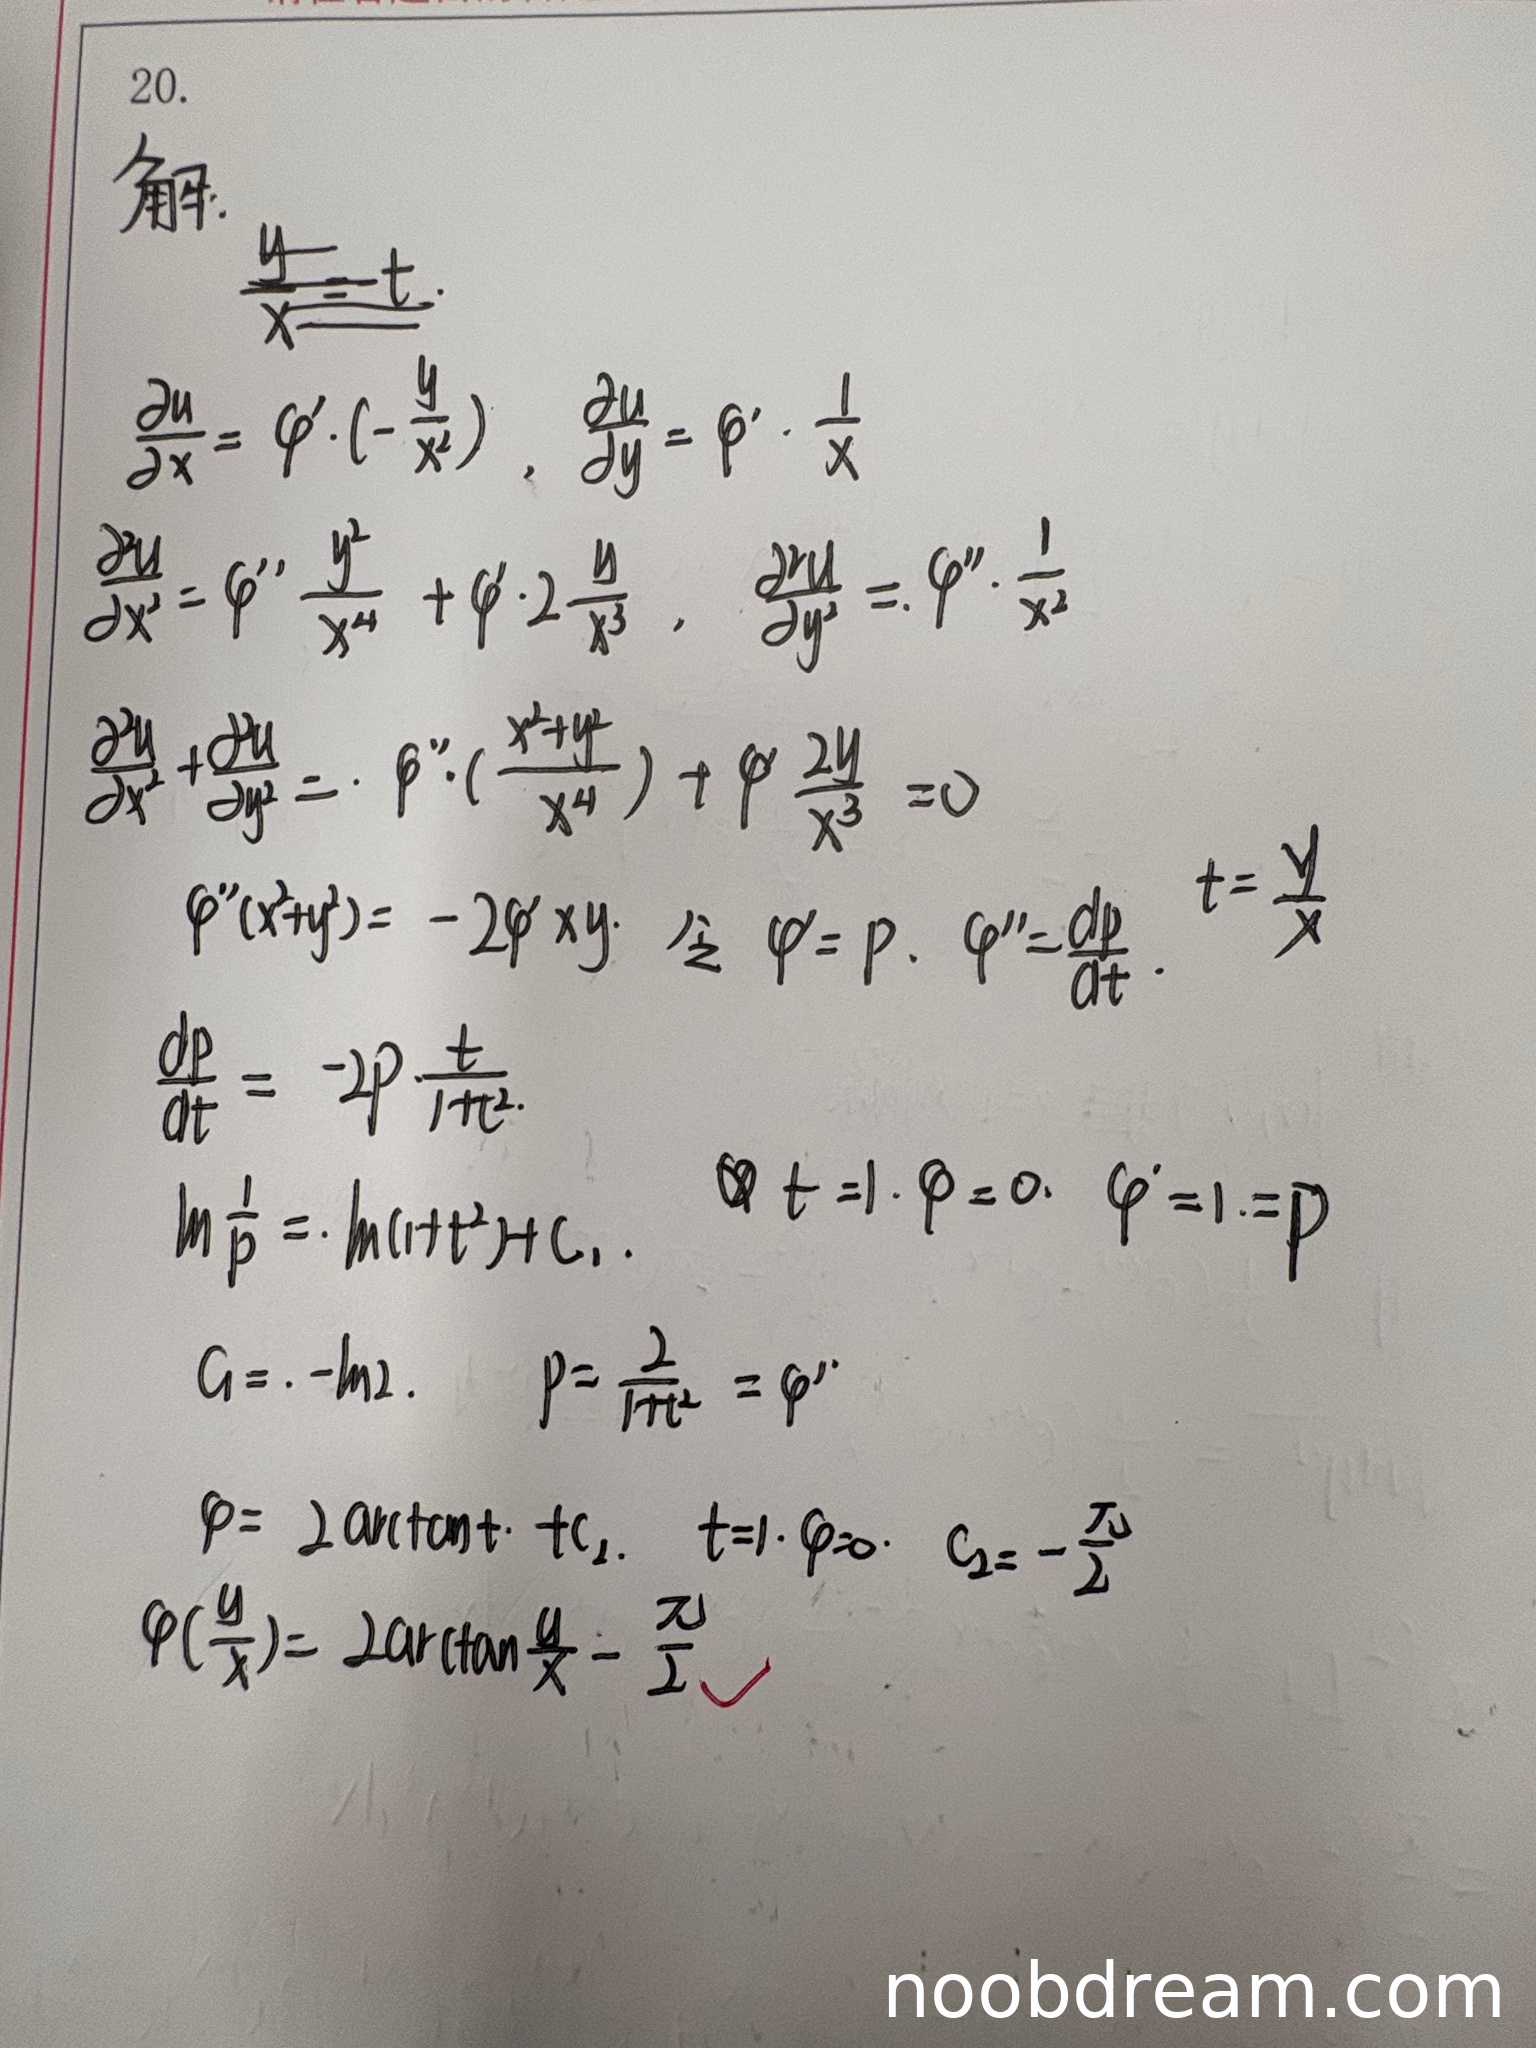 20.
解.
y/x = t.
∂u/∂x = φ'·(-y/x²), ∂u/∂y = φ'·1/x
∂²u/∂x² = φ'' y²/x⁴ + φ'·2 y/x³, ∂²u/∂y² =. φ''·1/x²
∂²u/∂x² + ∂²u/∂y² =. φ''·(x²+y²/x⁴) + φ' 2y/x³ =0
φ''(x²+y²)= -2φ'xy. 令 φ'=p. φ''=dp/dt. t=y/x
dp/dt = -2p·t/1+t².
ln 1/p =. ln(1+t²)+C₁. t=1. φ=0. φ'=1.=p
C₁=. -ln2. p= 2/1+t² = φ''
φ= 2arctant. +C₂. t=1. φ=0. C₂= -π/2
φ(y/x)= 2arctan y/x - π/2
noobdream.com